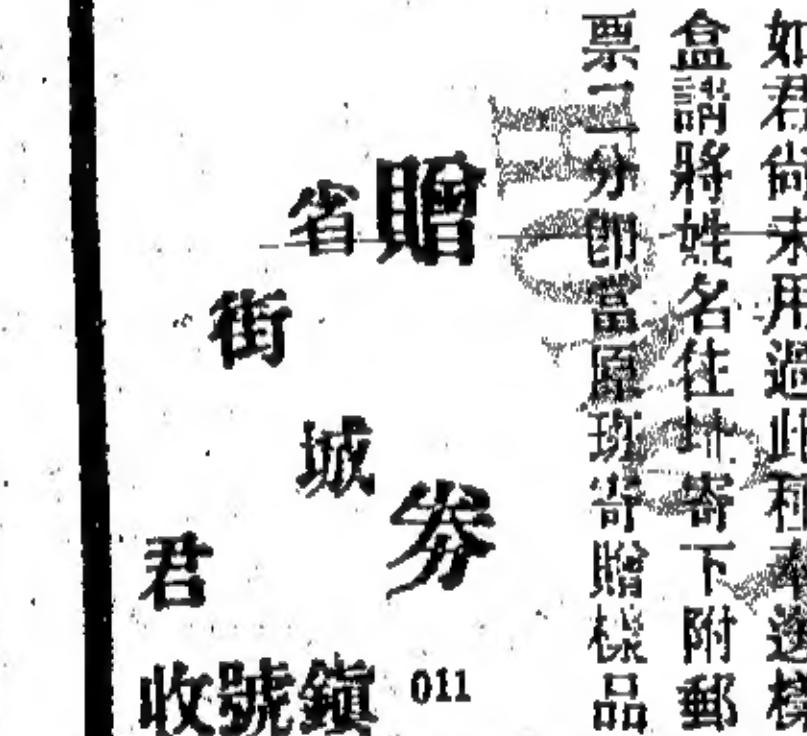 如君尚未用過此種奉送樣
盒請將姓名住址寄下附郵
票二分即當原班寄贈樣品
贈券
011
省城鎮
街號
君收